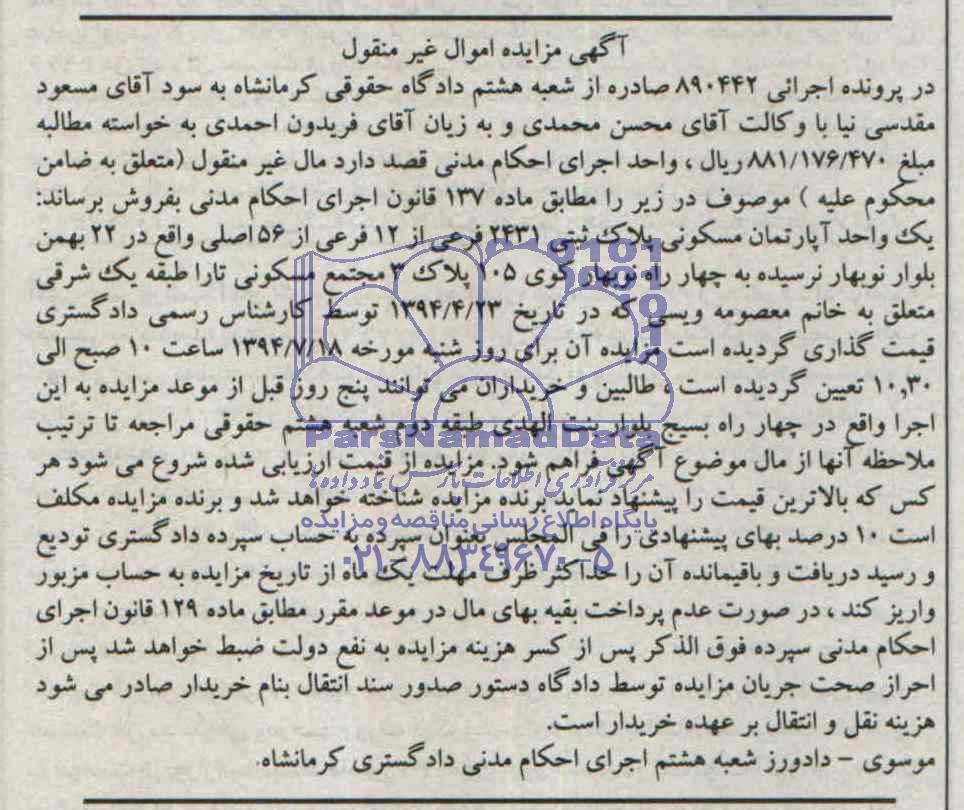 آگهی مزایده اموال غیر منقول
در پرونده اجرائی ۸۹۰۴۴۲ صادره از شعبه هشتم دادگاه حقوقی کرمانشاه به سود آقای مسعود
مقدسی نیا با وکالت آقای محسن محمدی و به زیان آقای فریدون احمدی به خواسته مطالبه
مبلغ ۸۸۱/۱۷۶/۴۷۰ ریال ، واحد اجرای احکام مدنی قصد دارد مال غیر منقول (متعلق به ضامن
محکوم علیه ) موصوف در زیر را مطابق ماده ۱۳۷ قانون اجرای احکام مدنی بفروش برساند:
یک واحد آپارتمان مسکونی پلاک ثبتی ۲۴۳۱ فرعی از ۱۲ فرعی از ۵۶ اصلی واقع در ۲۲ بهمن
بلوار نوبهار نرسیده به چهار راه نوبهار کوی ۱۰۵ پلاک ۳ مجتمع مسکونی تارا طبقه یک شرقی
متعلق به خانم معصومه ویسی که در تاریخ ۱۳۹۴/۴/۲۳ توسط کارشناس رسمی دادگستری
قیمت گذاری گردیده است مزایده آن برای روز شنبه مورخه ۱۳۹۴/۷/۱۸ ساعت ۱۰ صبح الی
۱۰,۳۰ تعیین گردیده است ، طالبین و خریداران می توانند پنج روز قبل از موعد مزایده به این
اجرا واقع در چهار راه بسیج بلوار بنت الهدی طبقه دوم شعبه هشتم حقوقی مراجعه تا ترتیب
ملاحظه آنها از مال موضوع آگهی فراهم شود. مزایده از قیمت ارزیابی شده شروع می شود هر
کس که بالاترین قیمت را پیشنهاد نماید برنده مزایده شناخته خواهد شد و برنده مزایده مکلف
است ۱۰ درصد بهای پیشنهادی را فی المجلس بعنوان سپرده به حساب سپرده دادگستری تودیع
و رسید دریافت و باقیمانده آن را حداکثر ظرف مهلت یک ماه از تاریخ مزایده به حساب مزبور
واریز کند ، در صورت عدم پرداخت بقیه بهای مال در موعد مقرر مطابق ماده ۱۲۹ قانون اجرای
احکام مدنی سپرده فوق الذکر پس از کسر هزینه مزایده به نفع دولت ضبط خواهد شد پس از
احراز صحت جریان مزایده توسط دادگاه دستور صدور سند انتقال بنام خریدار صادر می شود
هزینه نقل و انتقال بر عهده خریدار است.
موسوی - دادورز شعبه هشتم اجرای احکام مدنی دادگستری کرمانشاه.
ParsNamadData
مرکز فرآوری اطلاعات پارس نماد داده ها
پایگاه اطلاع رسانی مناقصه و مزایده
۰۲۱-۸۸۳۴۹۶۷۰-۵